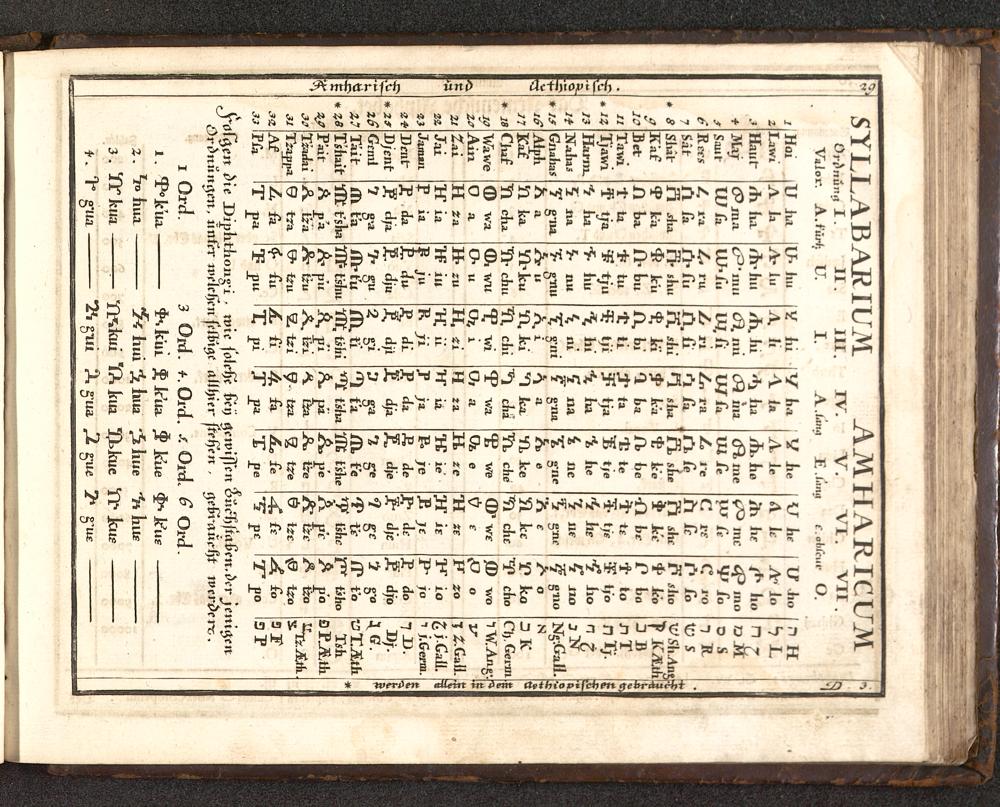 29
SYLLABARIUM AMHARICUM
Ordnung I. II. III. IV. V. VI. VII.
Valor. A.kürtz U. I. A.lang E.lang e.obscur O.
1 Hoi ሀ ha ሁ hu ሂ hi ሃ ha ሄ he ህ he ሆ ho ה H
2 Lawi ለ la ሉ lu ሊ li ላ la ሌ le ል le ሎ lo ל L
3 Haut ሐ ha ሑ hu ሒ hi ሓ ha ሔ he ሕ he ሖ ho
4 Maj መ ma ሙ mu ሚ mi ማ ma ሜ me ም me ሞ mo מ M
5 Saut ሠ sa ሡ su ሢ si ሣ sa ሤ se ሥ se ሦ so S
6 Rees ረ ra ሩ ru ሪ ri ራ ra ሬ re ር re ሮ ro ר R
7 Sât ሰ sa ሱ su ሲ si ሳ sa ሴ se ስ se ሶ so
* 8 Shât ሸ sha ሹ shu ሺ shi ሻ sha ሼ she ሽ she ሾ sho ש Sh Ang
9 Kaf ቀ ka ቁ ku ቂ ki ቃ ka ቄ ke ቅ ke ቆ ko K Æth
10 Bet በ ba ቡ bu ቢ bi ባ ba ቤ be ብ be ቦ bo ב B
11 Tawi ተ ta ቱ tu ቲ ti ታ ta ቴ te ት te ቶ to ת T
* 12 Tjawi ቸ tja ቹ tju ቺ tji ቻ tja ቼ tje ች tje ቾ tjo Tj.
13 Harm ኀ ha ኁ hu ኂ hi ኃ ha ኄ he ኅ he ኆ ho
14 Nahas ነ na ኑ nu ኒ ni ና na ኔ ne ን ne ኖ no נ N
* 15 Gnahas ኘ gna ኙ gnu ኚ gni ኛ gna ኜ gne ኝ gne ኞ gno Ng.Gall.
16 Alph አ a ኡ u ኢ i ኣ a ኤ e እ e ኦ o א
17 Kaf ከ ka ኩ ku ኪ ki ካ ka ኬ ke ክ ke ኮ ko כ K
* 18 Chaf ኸ cha ኹ chu ኺ chi ኻ cha ኼ che ኽ che ኾ cho Ch.Germ
19 Wawe ወ wa ዉ wu ዊ wi ዋ wa ዌ we ው we ዎ wo ו W.Ang.
20 Ain ዐ a ዑ u ዒ i ዓ a ዔ e ዕ e ዖ o ע
21 Zai ዘ za ዙ zu ዚ zi ዛ za ዜ ze ዝ ze ዞ zo ז Z.Gall.
* 22 Jai ዠ ia ዡ iu ዢ ii ዣ ia ዤ ie ዥ ie ዦ io j.Gall.
23 Jaman የ ia ዩ ju ዪ ji ያ ja ዬ je ይ je ዮ jo j.Germ.
24 Dent ደ da ዱ du ዲ di ዳ da ዴ de ድ de ዶ do ד D.
* 25 Djent ጀ dja ጁ dju ጂ dji ጃ dja ጄ dje ጅ dje ጆ djo Dj.
26 Geml ገ ga ጉ gu ጊ gi ጋ ga ጌ ge ግ ge ጎ go ג G.
27 Tait ጠ ta ጡ tu ጢ ti ጣ ta ጤ te ጥ te ጦ to ט T.Æth.
* 28 Tshait ጨ tsha ጩ tshu ጪ tshi ጫ tsha ጬ tshe ጭ tshe ጮ tsho Tsh
29 Pait ጰ pa ጱ pu ጲ pi ጳ pa ጴ pe ጵ pe ጶ po P.Æth
30 Tzadai ጸ tza ጹ tzu ጺ tzi ጻ tza ጼ tze ጽ tze ጾ tzo צ Tz.Æth.
31 Tzappa ፀ tza ፁ tzu ፂ tzi ፃ tza ፄ tze ፅ tze ፆ tzo
32 Af ፈ fa ፉ fu ፊ fi ፋ fa ፌ fe ፍ fe ፎ fo F
33 Psa ፐ pa ፑ pu ፒ pi ፓ pa ፔ pe ፕ pe ፖ po P
Folgen die Diphthongi, wie solche beÿ gewissen Buchstaben, der jenigen
Ordnungen, unser welchen selbige allhier stehen, gebraucht werden.
1 Ord. 3 Ord. 4. Ord. 5. Ord. 6 Ord.
1. ቈ kua ቊ kui ቋ kua ቌ kue ቍ kue
2. ኈ hua ኊ hui ኋ hua ኌ hue ኍ hue
3. ኰ kua ኲ kui ኳ kua ኴ kue ኵ kue
4. ጐ gua ጒ gui ጓ gua ጔ gue ጕ gue
Amharisch und Aethiopisch.
* werden allein in dem Aethiopischen gebraucht.
D. 3.